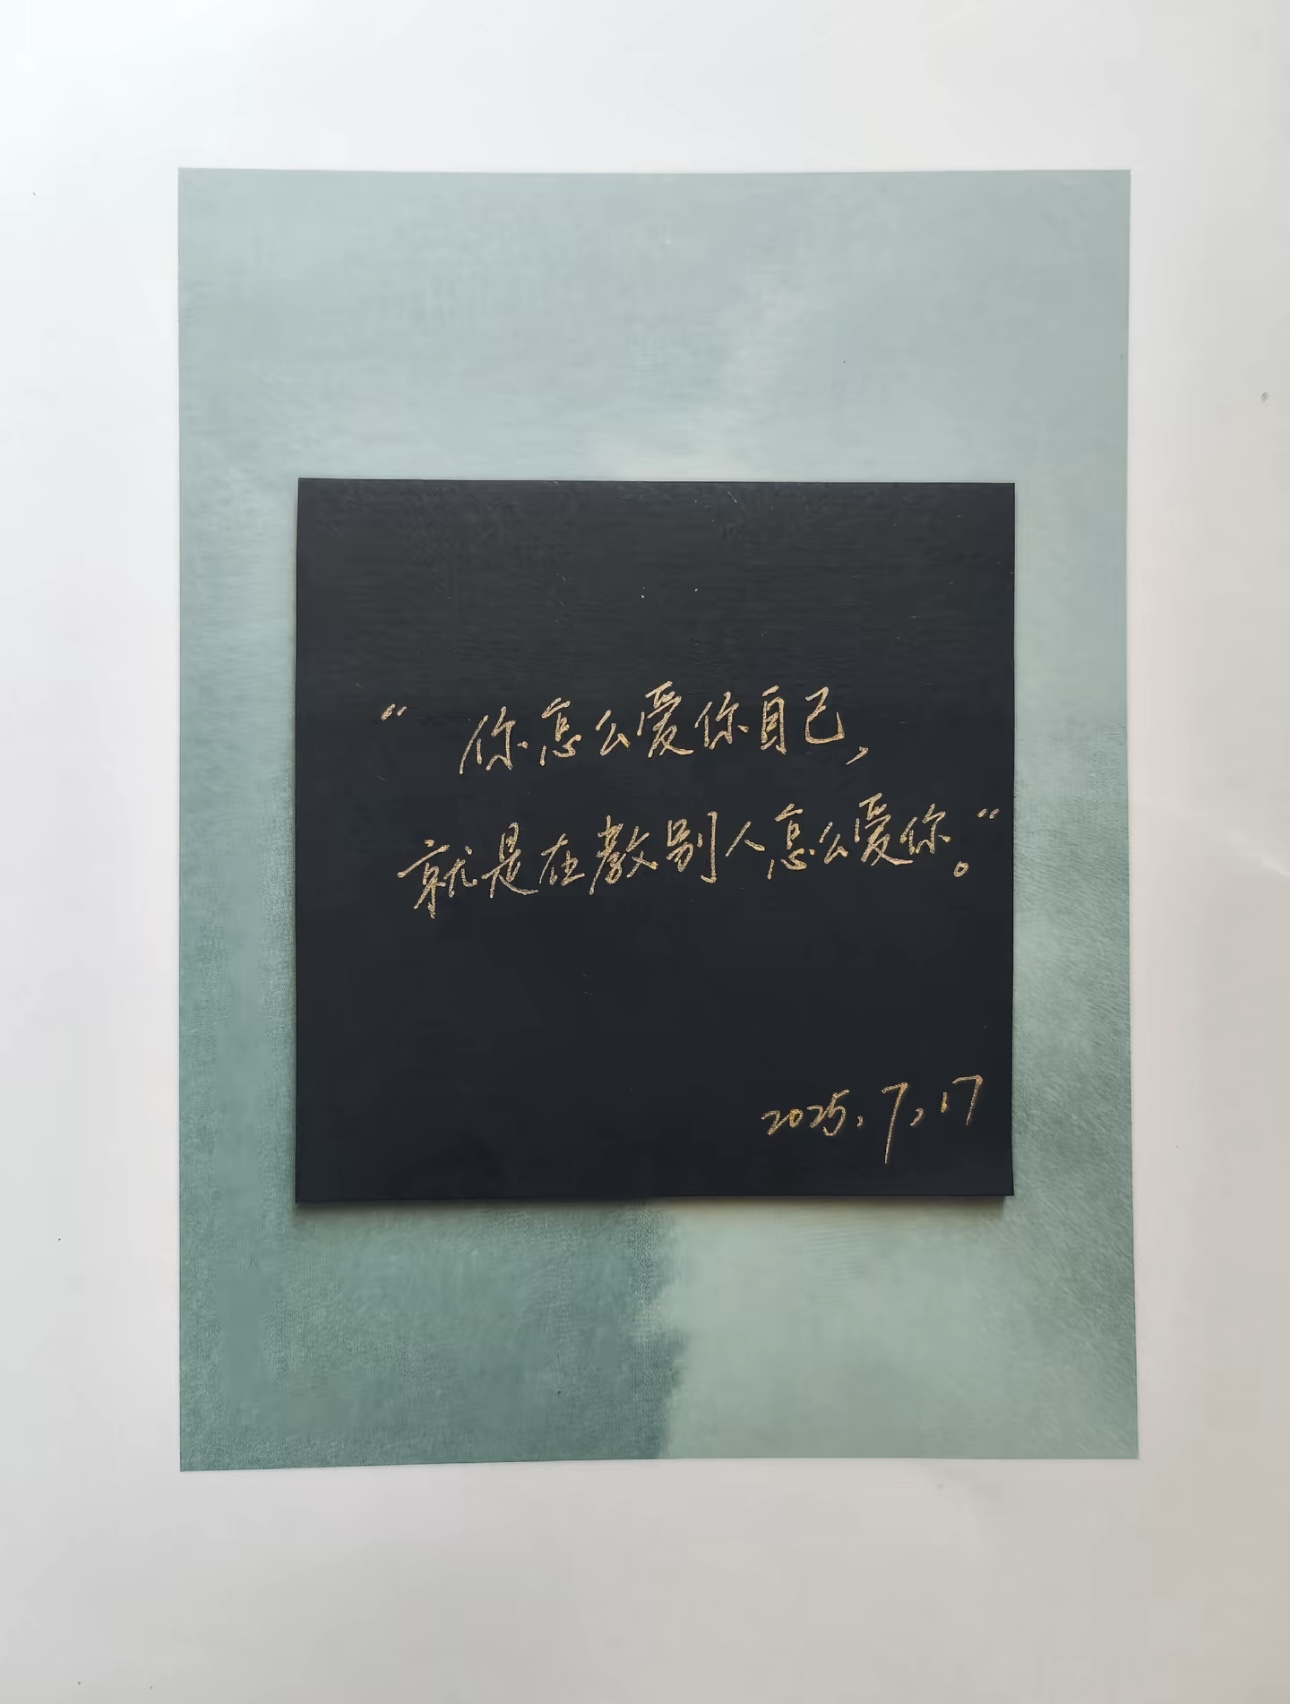 “你怎么爱你自己，
就是在教别人怎么爱你。”
2025.7.17